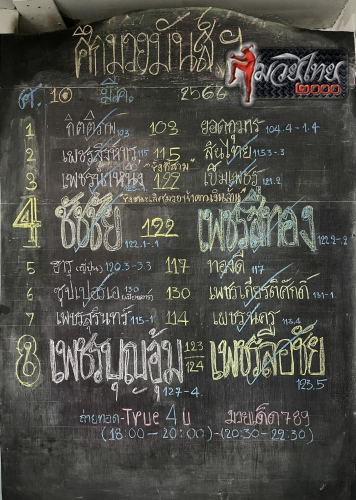 ศึกมวยมันส์ฯ
มวยไทย
2000
ศ. 10 มี.ค. 2566
1 กิตติภพ 103 103 ยอดกุมาร 104.4-1.4
2 เพชรสิงหาร 115 115 สันไทย 115.3-.3
3 122 เข็มเพชร 121.2
4 ชัยชัย 122.1-.1 122 เพชรสีทอง 122.2-.2
5 ฮารุ (ญี่ปุ่น) 120.3-3.3 117 ทองดี 117
6 ซุปเปอร์เอ 130 130 เพชรเกียรติศักดิ์ 131-1
7 เพชรสุรินทร์ 115-1 114 เพชรนคร 113.4
8 เพชรบุญชุ้ม 127-4 123 124 เพชรลือชัย 123.5
ถ่ายทอด-True 4U มวยเด็ด789
(18:00-20:00)-(20:30-22:30)